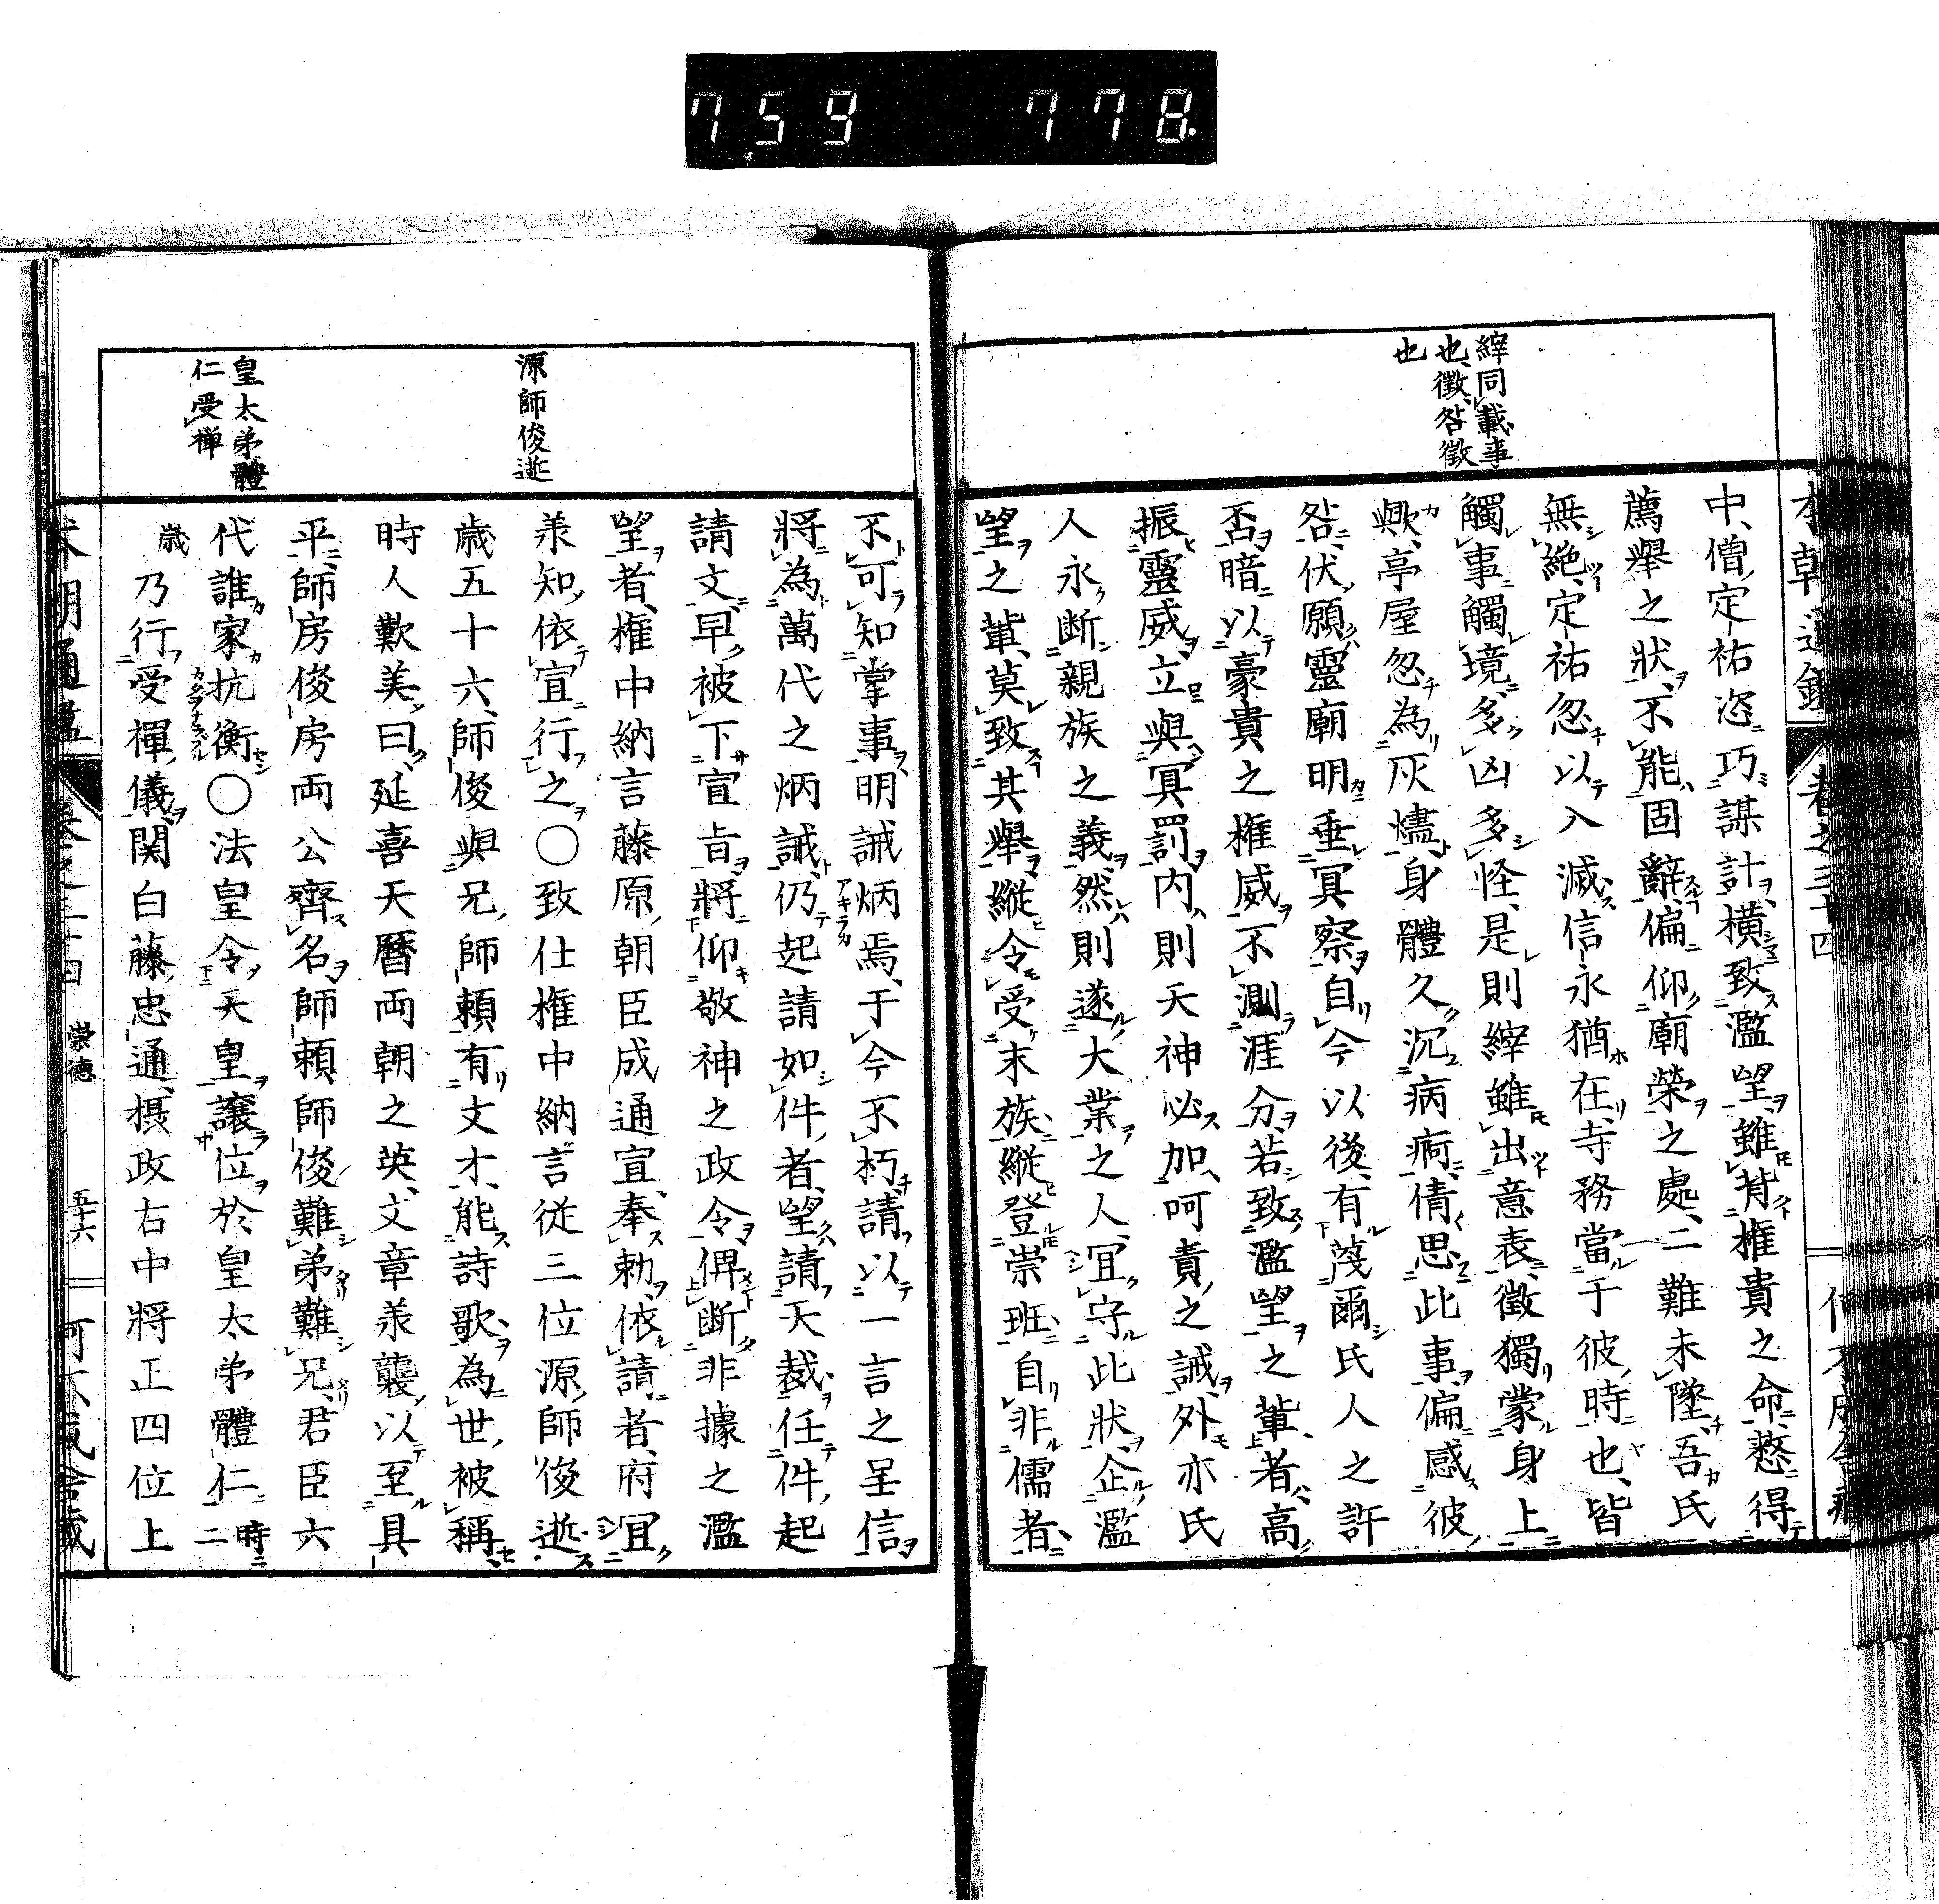 759 778.
縡同載事
也徵咎徵
也
中僧定祐恣巧謀計横致濫望雖背権貴之命憗得
薦舉之狀不能固辭偏仰廟榮之處二難未墜吾氏
無絶定祐忽以入滅信永猶在寺務當于彼時也皆
觸事觸境多凶多怪是則縡雖出意表徵獨蒙身上
歟亭屋忽為灰燼身體久沉病痾倩思此事偏感彼
咎伏願靈廟明垂冥察自今以後有蔑爾氏人之許
否暗以豪貴之権威不測涯分若致濫望之輩者高
振靈威立與冥罰内則天神必加呵責之誡外亦氏
人永断親族之義然則遂大業之人宜守此狀企濫
望之輩莫致其舉縦令受末族縦登崇班自非儒者
不可知掌事明誡炳焉于今不朽請以一言之呈信
將為萬代之炳誡仍起請如件者望請天裁任件起
請文早被下宣旨將仰敬神之政令俾断非據之濫
望者権中納言藤原朝臣成通宣奉勅依請者府宜
羕知依宣行之○致仕権中納言従三位源師俊逝
歳五十六師俊與兄師頼有文才能詩歌為世被稱
時人歎美曰延喜天暦両朝之英文章羕襲以至具
平師房俊房両公齊名師頼師俊難弟難兄君臣六
代誰家抗衡○法皇令天皇讓位於皇太弟體仁時二
歳乃行受禪儀関白藤忠通摂政右中將正四位上
源師俊逝
皇太弟體
仁受禅
崇徳
五十六